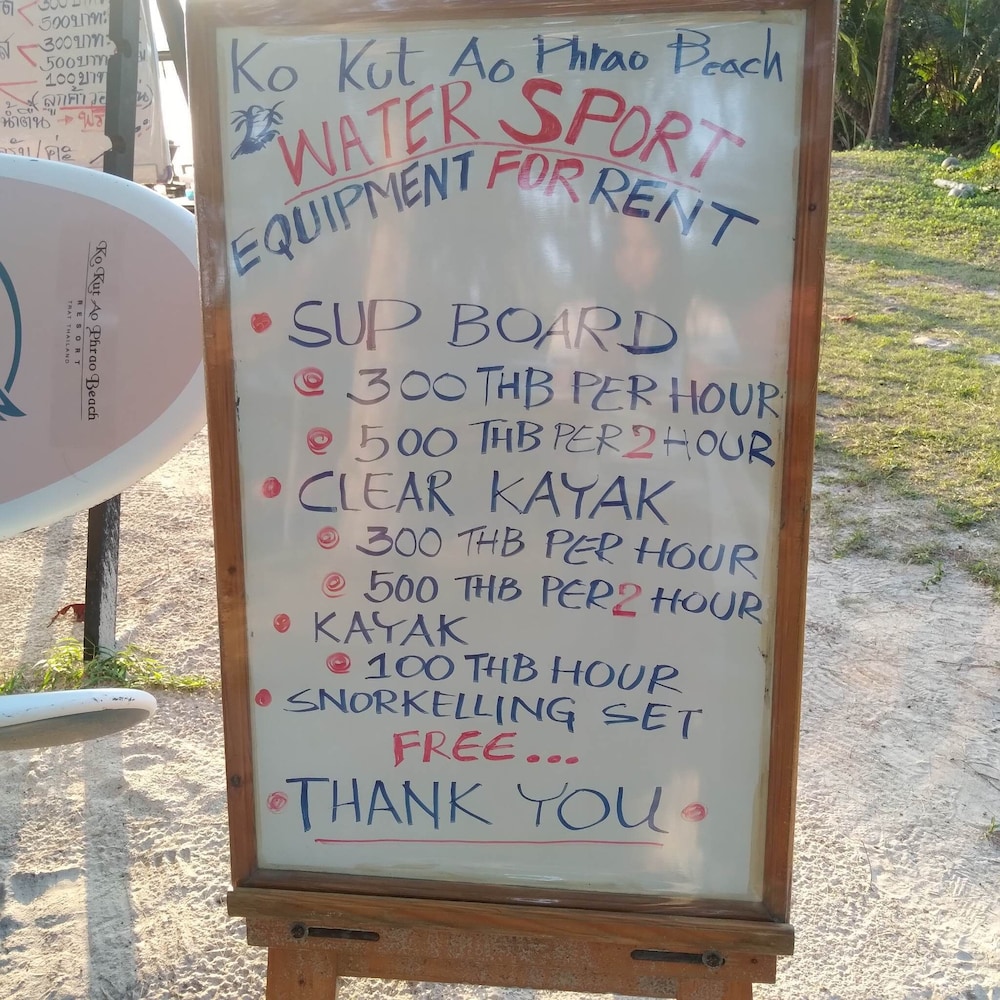 300บาท
500บาท
300บาท
500บาท
100บาท
Ko Kut Ao Phrao Beach
RESORT
TRAT THAILAND
Ko Kut Ao Phrao Beach
WATER SPORT
EQUIPMENT FOR RENT
SUP BOARD
300 THB PER HOUR
500 THB PER 2 HOUR
CLEAR KAYAK
300 THB PER HOUR
500 THB PER 2 HOUR
KAYAK
100 THB HOUR
SNORKELLING SET
FREE...
THANK YOU